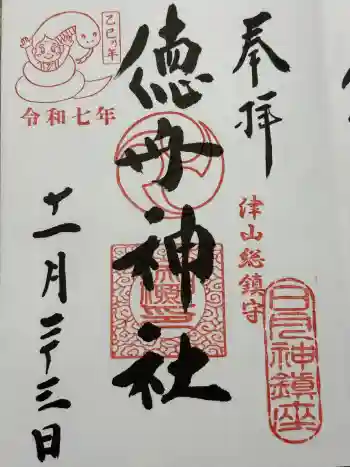 奉拝
津山総鎮守
日月神鎮座
徳守神社
乙巳の年
令和七年
十一月二十三日